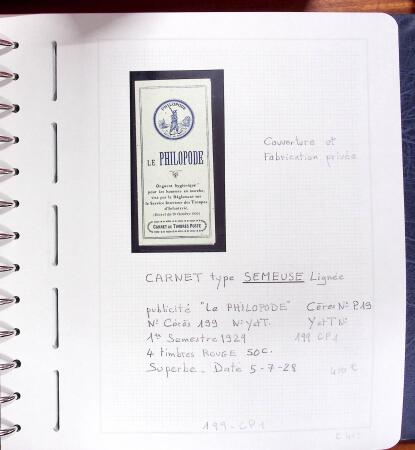 PHILOPODE
LE PHILOPODE
Onguent hygiénique
pour les hommes en marche,
visé par le Règlement sur
le Service Intérieur des Troupes
d'Infanterie.
CARNET DE TIMBRES-POSTE
Couverture et
Fabrication privée
CARNET type SEMEUSE Lignée
publicité "Le PHILOPODE" Cérès N° P.19
N° Cérès 199 N° YetT. Y et T N°
1er Semestre 1929 199 CP1
4 timbres ROUGE 50c.
Superbe. Daté 5-7-28
199-CP1